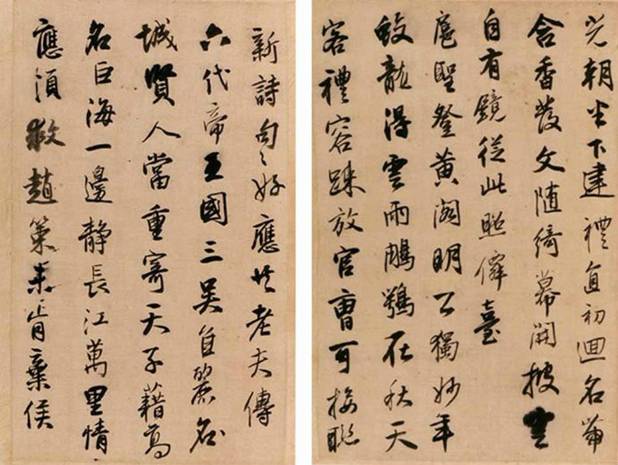 光朝半下建禮直初迴名筆
含香發文隨綺幕開披雲
自有鏡從此照僊臺
扈聖登黃閣明公獨妙年
蛟龍得雲雨鵰鶚在秋天
客禮容踈放官曹可接聯
新詩句〻好應共老夫傳
六代帝王國三吳自麗名
城賢人當重寄天子藉高
名巨海一邊靜長江萬里情
應須救趙策未肯棄侯